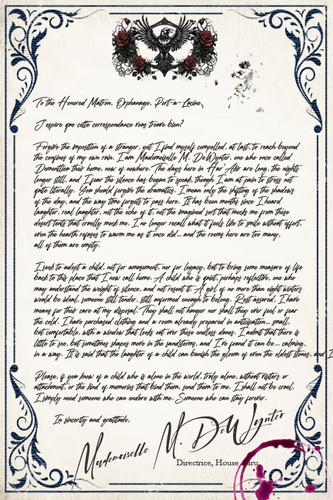 To the Honored Matron, Orphanage, Port-a-Lucine,
J'espère que cette correspondance vous trouve bien?
Forgive the imposition of a stranger, yet I find myself compelled, at last, to reach beyond
the confines of my own ruin. I am Mademoiselle M. DeWynter, once who called
Dementlieu their home, now of nowhere. The days here in Har'Akir are long, the nights
longer still, and I fear the silence has begun to speak, though I am at pain to stress not
quite literally. You should forgive the dramatics, I mean only the shifting of the shadows
of the day, and the way time forgets to pass here. It has been months since I heard
laughter, real laughter, not the echo of it, not the imagined sort that mocks me from these
desert tents that crudely mock me. I no longer recall what it feels like to smile without effort,
even the hearth refuses to warm me as it once did... and the rooms here are too many,
all of them are empty.
I seek to adopt a child, not for amusement, nor for legacy, but to bring some measure of life
back to this place that I now call home. A child who is quiet, perhaps reflective, one who
may understand the weight of silence, and not resent it. A girl of no more than eight winters
would be ideal, someone still tender, still unformed enough to belong. Rest assured, I have
means for their care at my disposal. They shall not hunger nor shall they ever feel or fear
the cold. I have purchased clothing and a room already prepared in anticipation... small,
but comfortable, with a window that looks out over these endless dunes. I admit that there is
little to see, but sometimes shapes move in the sandstorms, and I've found it can be... calming,
in a way. It is said that the laughter of a child can banish the gloom of even the oldest stones, and I
Please, if you know of a child who is alone in the world, truly alone, without visitors or
attachment, or the kind of memories that bind them, send them to me. I shall not be cruel.
I simply need someone who can endure with me. Someone who can stay forever.
In sincerity and gratitude,
Mademoiselle M. DeWynter
Directrice, House